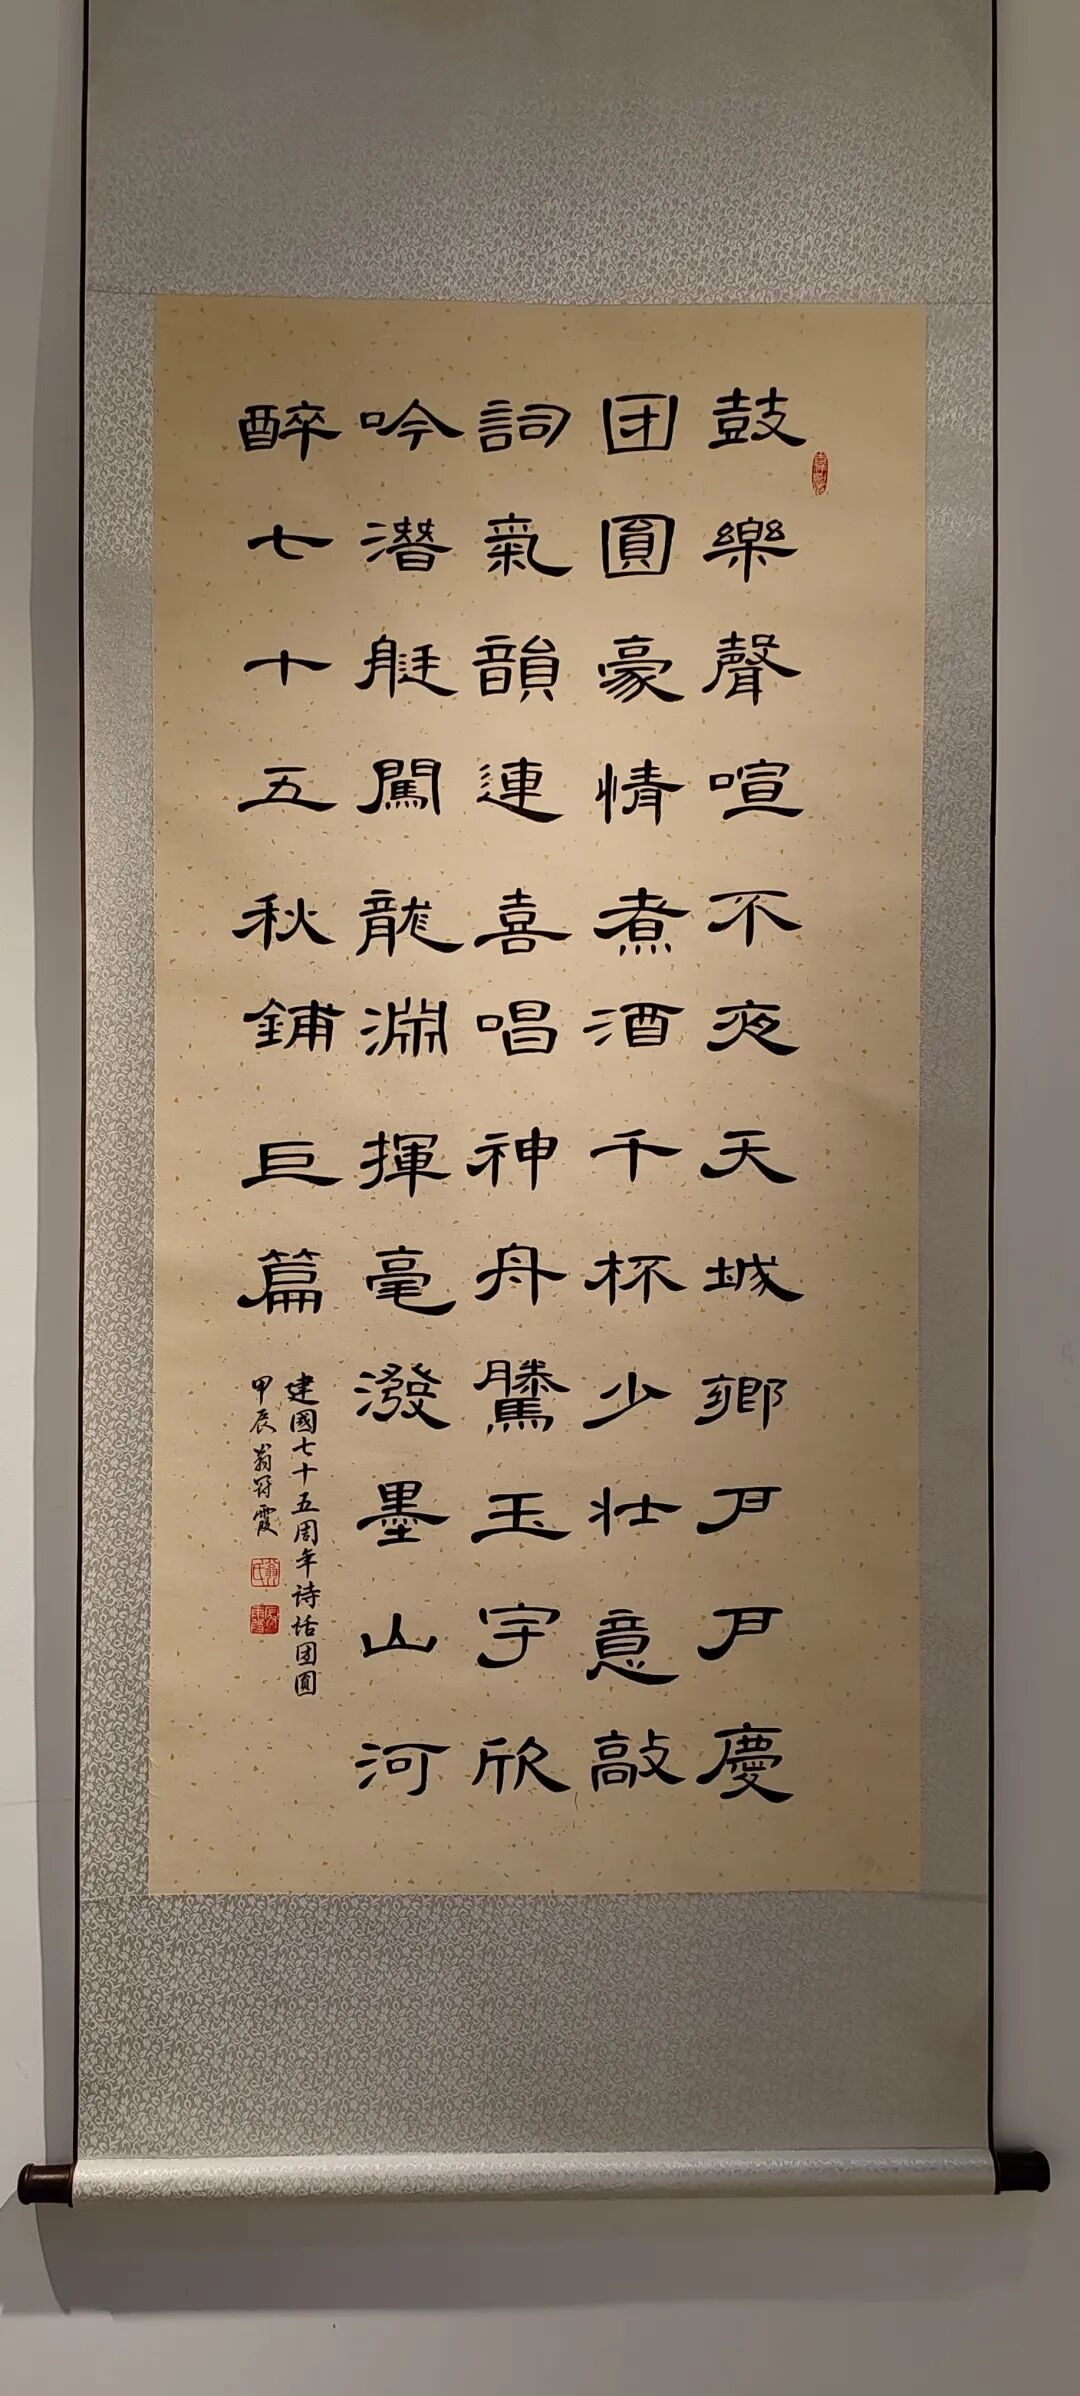 鼓樂聲喧不夜天城鄉戶戶慶
团圓豪情煮酒千杯少壯意敲
詞氣韻連喜唱神舟騰玉宇欣
吟潛艇闖龍淵揮毫潑墨山河
醉七十五秋鋪巨篇
建國七十五周年诗话团圆
甲辰翁符霞